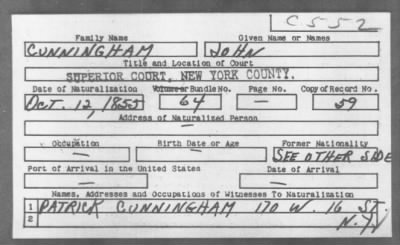 C552
Family Name Given Name or Names
CUNNINGHAM JOHN
Title and Location of Court
SUPERIOR COURT, NEW YORK COUNTY.
Date of Naturalization Volume or Bundle No. Page No. Copy of Record No.
OCT. 12, 1855 64 — 59
Address of Naturalized Person
—
Occupation Birth Date or Age Former Nationality
— — SEE OTHER SIDE
Port of Arrival in the United States Date of Arrival
— —
Names, Addresses and Occupations of Witnesses To Naturalization
1 PATRICK CUNNINGHAM 170 W. 16 ST.
2 N.Y.